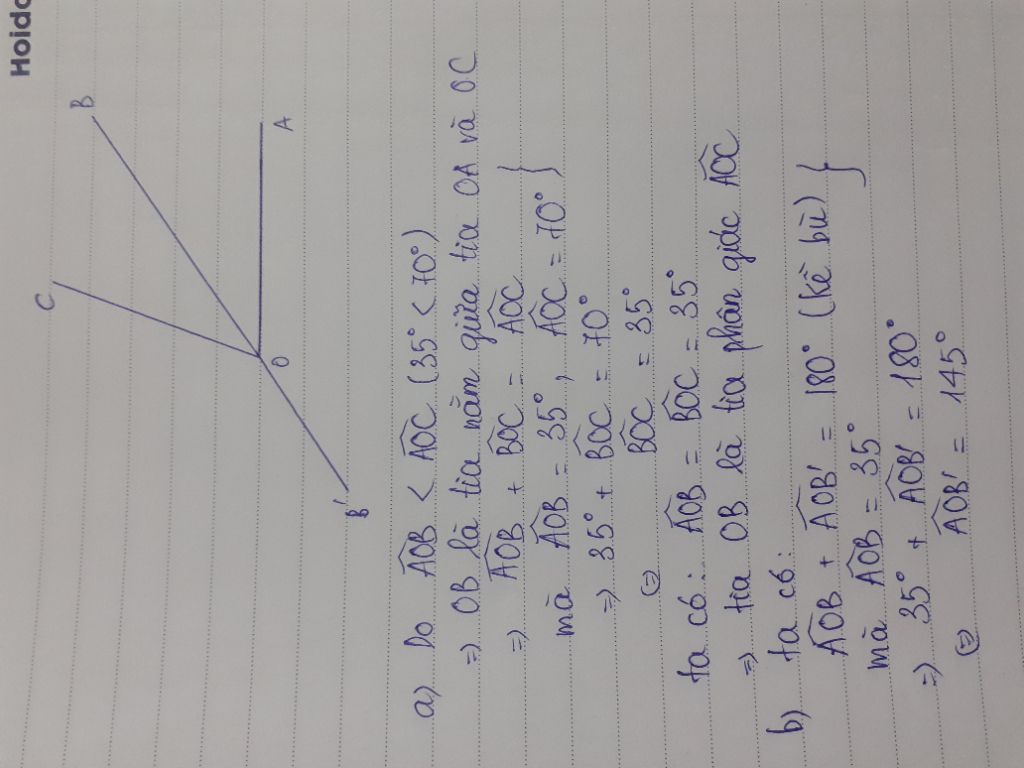 Hoidc
C
B
O
A
B'
a) Do \widehat{AOB} < \widehat{AOC} (35° < 70°)
=> OB là tia nằm giữa tia OA và OC
=> \widehat{AOB} + \widehat{BOC} = \widehat{AOC} }
mà \widehat{AOB} = 35°, \widehat{AOC} = 70°
=> 35° + \widehat{BOC} = 70°
(=) \widehat{BOC} = 35°
ta có: \widehat{AOB} = \widehat{BOC} = 35°
=> tia OB là tia phân giác \widehat{AOC}
b) ta có:
\widehat{AOB} + \widehat{AOB'} = 180° (kề bù) }
mà \widehat{AOB} = 35°
=> 35° + \widehat{AOB'} = 180°
(=) \widehat{AOB'} = 145°